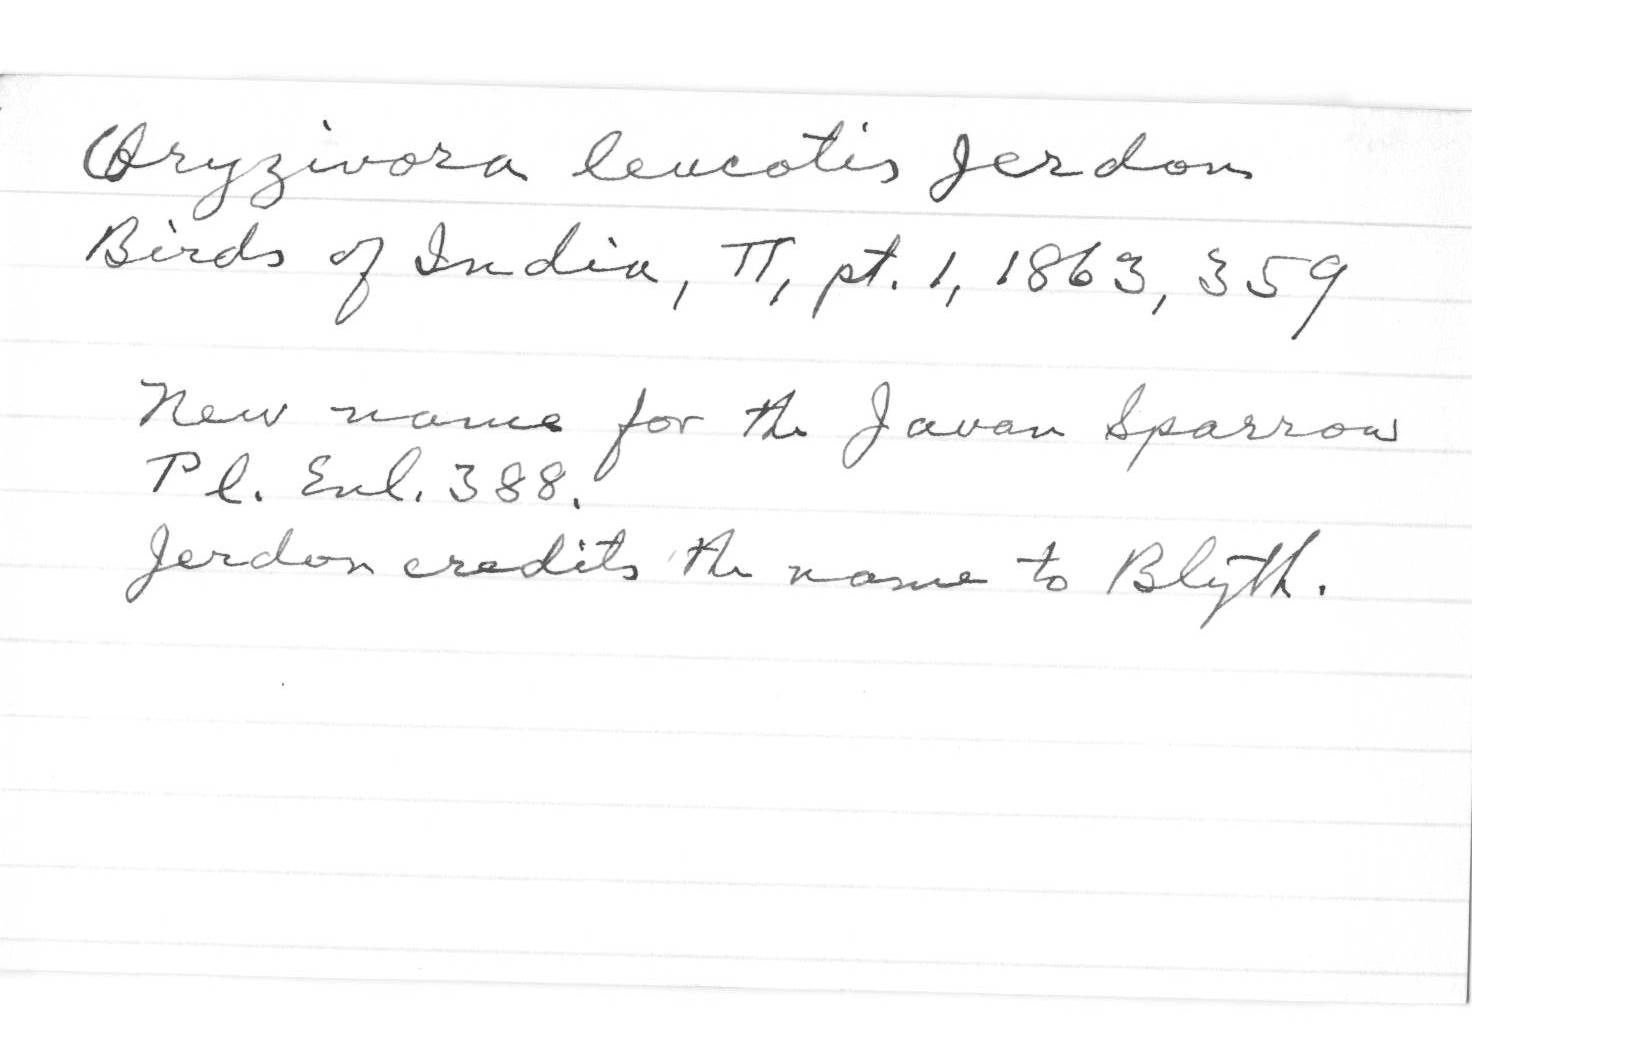 Oryzivora leucotis Jerdon
Birds of India, II, pt. 1, 1863, 359
New name for the Javan Sparrow
Pl. Enl. 388.
Jerdon credits the name to Blyth.